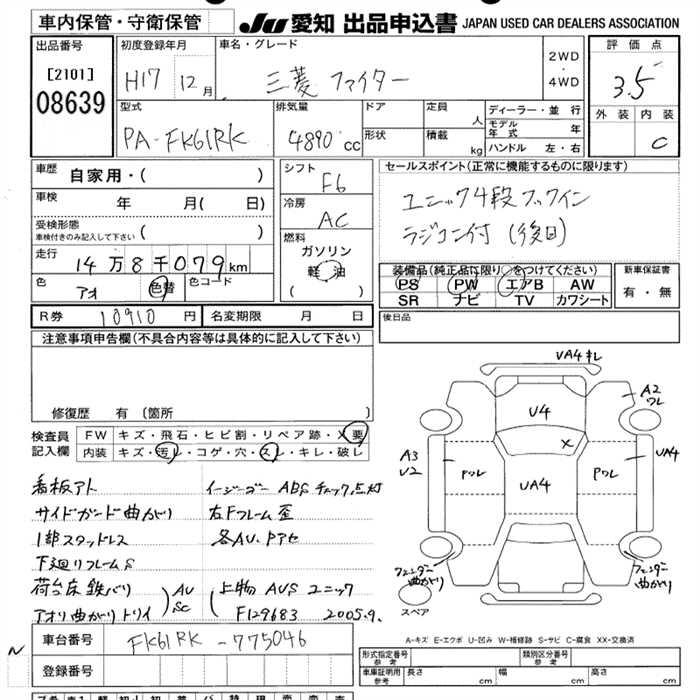 車内保管・守衛保管
JU 愛知 出品申込書 JAPAN USED CAR DEALERS ASSOCIATION
出品番号
[2101]
08639
初度登録年月
H17 12月
車名・グレード
三菱 ファイター
2WD
・
4WD
評価点
3.5
外装 内装
C
型式
PA-FK61RK
排気量
4890 cc
ドア
形状
定員 人
積載 kg
ディーラー・並行
モデル年式 年
ハンドル 左・右
車歴 自家用・( )
車検 年 月( 日)
受検形態
車検付きのみ記入して下さい ( )
走行 14万8千079km
色 アオ 色替 色コード
シフト
F6
冷房
AC
燃料
ガソリン
軽油
( )
セールスポイント(正常に機能するものに限ります)
ユニック4段フックイン
ラジコン付(後日)
装備品(純正品に限り○をつけてください)
PS PW エアB AW
SR ナビ TV カワシート
新車保証書
有・無
R券 10910 円 名変期限 月 日
後日品
注意事項申告欄(不具合内容等は具体的に記入して下さい)
修復歴 有(箇所 )
検査員記入欄
FW キズ・飛石・ヒビ割・リペア跡・X要
内装 キズ・汚レ・コゲ・穴・スレ・キレ・破レ
看板アト
サイドガード曲がり
1部スタッドレス
下廻りフレームS
荷台床鉄バリ
アオリ曲がりトリイ
AU
SC
イージーゴー ABSチェック点灯
右Fフレーム歪
各AU・Pアセ
上物 AUS ユニック
F129683 2005.9.
VA4キレ
A2
ワレ
U4
X
A3
U2
Pワレ
UA4
Pワレ
UA4
フェンダー
曲がり
フェンダー
曲がり
スペア
A-キズ E-エクボ U-凹み W-補修跡 S-サビ C-腐食 XX-交換済
車台番号 FK61RK-775046
登録番号
形式指定番号
参考
類別区分番号
参考
車庫証明用
参考
長さ cm 幅 cm 高さ cm